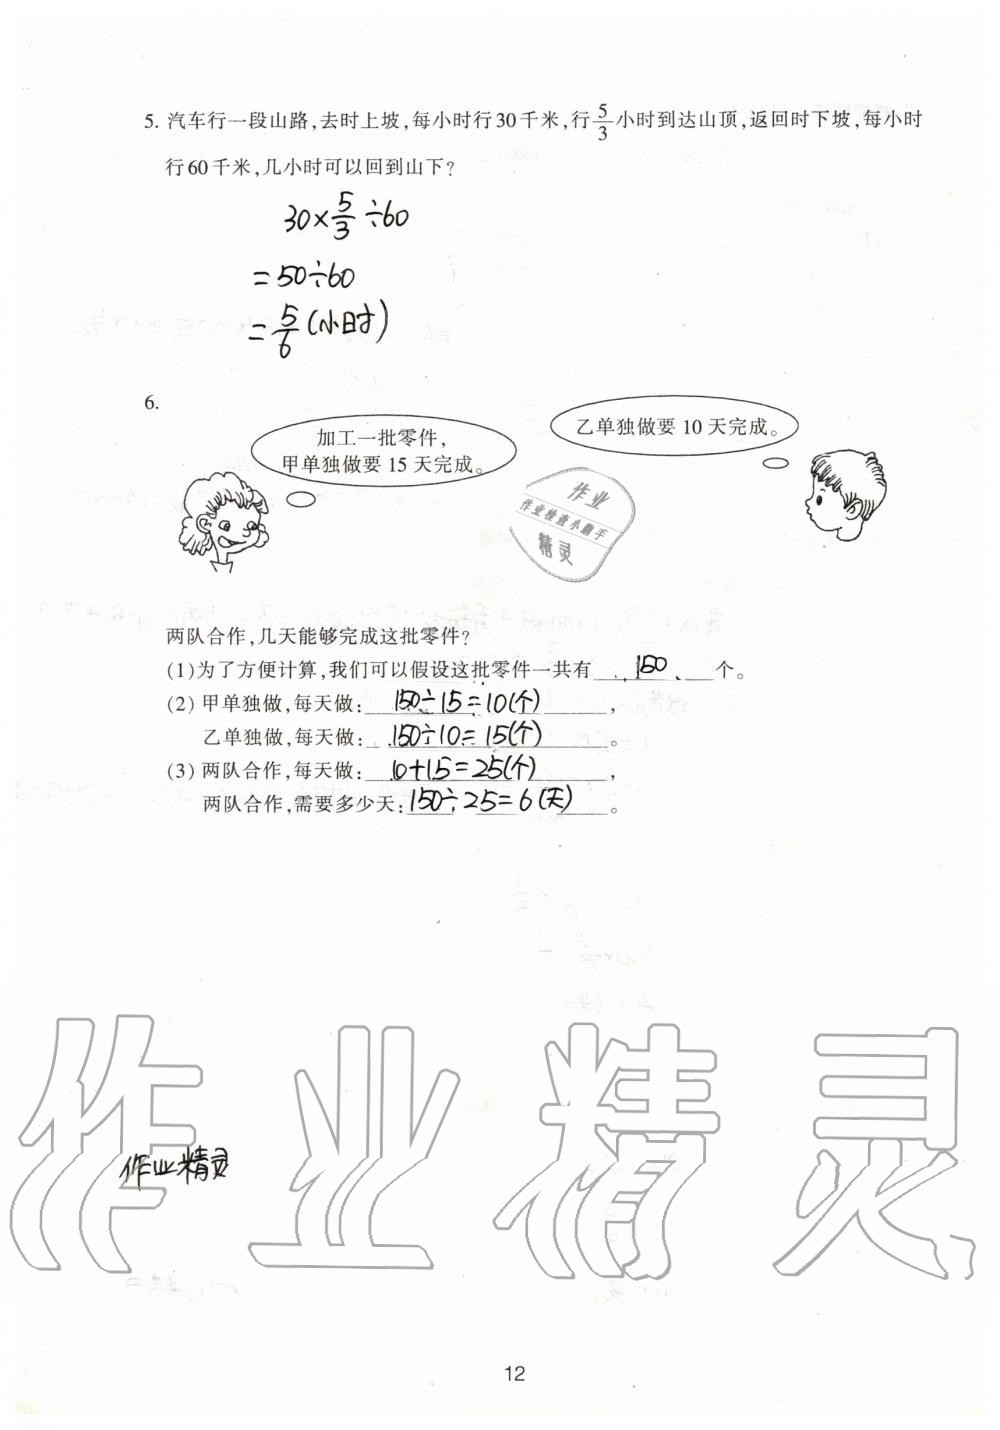 5. 汽车行一段山路,去时上坡,每小时行30千米,行5/3小时到达山顶,返回时下坡,每小时
行60千米,几小时可以回到山下?
30×5/3÷60
=50÷60
=5/6(小时)
6.
加工一批零件,
甲单独做要15天完成。
乙单独做要10天完成。
作业
作业检查小助手
精灵
两队合作,几天能够完成这批零件?
(1)为了方便计算,我们可以假设这批零件一共有 150 个。
(2)甲单独做,每天做: 150÷15=10(个) ,
乙单独做,每天做: 150÷10=15(个) 。
(3)两队合作,每天做: 10+15=25(个) ,
两队合作,需要多少天: 150÷25=6(天) 。
作业精灵
作业精灵
12